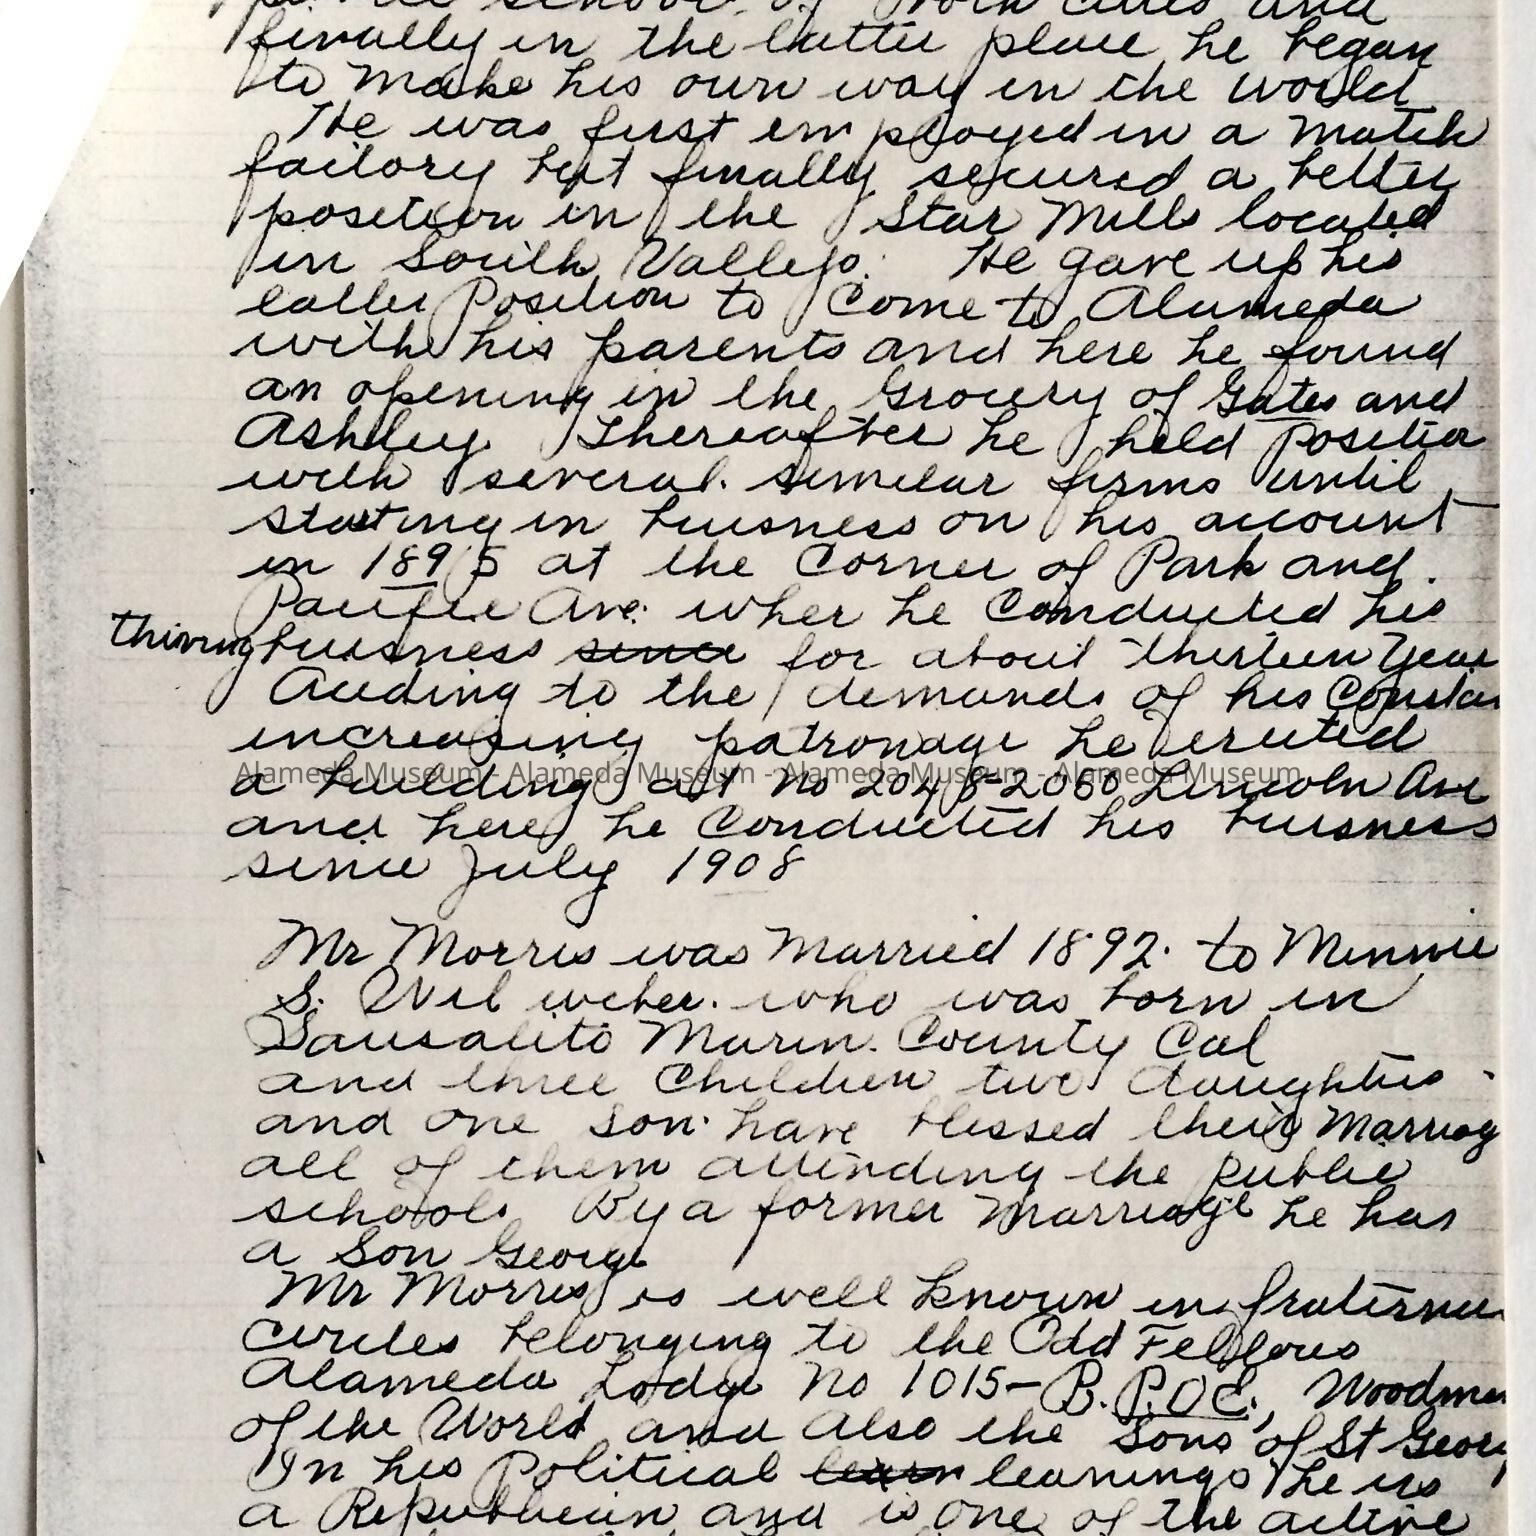 school of both cities and
finally in the latter place he began
to make his own way in the world
He was first employed in a match
factory but finally secured a better
position in the Star Mills located
in South Vallejo. He gave up his
latter Position to come to Alameda
with his parents and here he found
an opening in the Grocery of Gates and
Ashley Thereafter he held Position
with several. similar firms until
starting in buisness on his account
in 1895 at the Corner of Park and.
Pacific Ave. wher he Conducted his
thriving buisness since for about thirteen Year
Acceding to the demands of his Constan
increasing patronage he erected
a building at No 2048-2050 Lincoln Ave
Alameda Museum - Alameda Museum - Alameda Museum - Alameda Museum
and here he Conducted his buisness
since July 1908
Mr Morris was Married 1892. to Minnie
S. who was born in
Sausalito Marin. County Cal
and three Children two daughters
and one son. have blessed their Marriag
all of them attending the public
schools. By a former Marriage he has
a Son George
Mr Morris is well known in fraternal
circles belonging to the Odd Fellows
Alameda Lodge No 1015- B.P.O.E., Woodmen
of the World and also the Sons of St Georg
In his Political learn leanings he is
a Republican and is one of the active